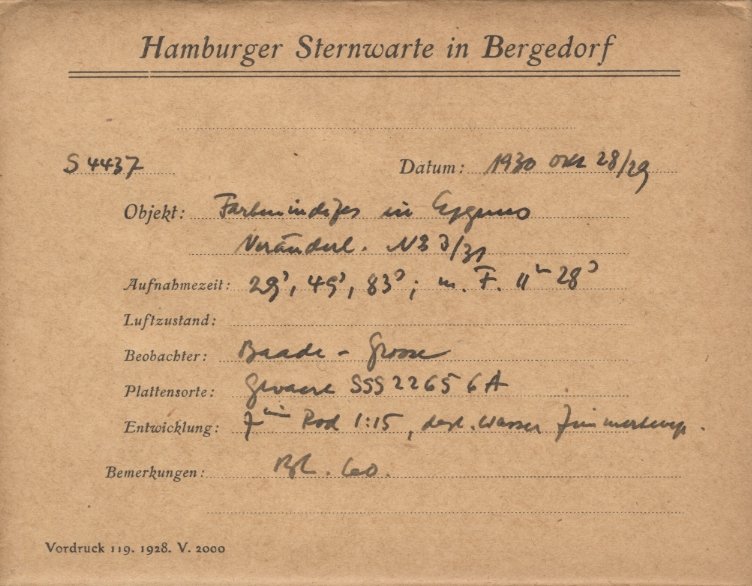 Hamburger Sternwarte in Bergedorf
S 4437 Datum: 1930 Okt 28/29
Objekt: Farbenindizes in Cygnus
Veränderl. NB 3/31
Aufnahmezeit: 29ˢ, 49ˢ, 83ˢ; m. F. 11ᵐ 28ˢ
Luftzustand:
Beobachter: Baade - Grosse
Plattensorte: Gevaert SSS 22656A
Entwicklung: 7ᵐⁱⁿ Rod 1:15, dest. Wasser Zimmertemp.
Bemerkungen: Bl. 60.
Vordruck 119. 1928. V. 2000